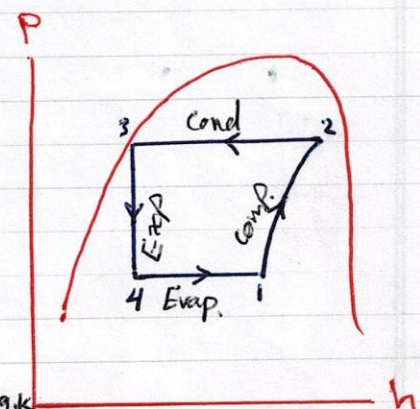 P
3
Cond
2
Exp
Comp.
4
Evap.
1
h